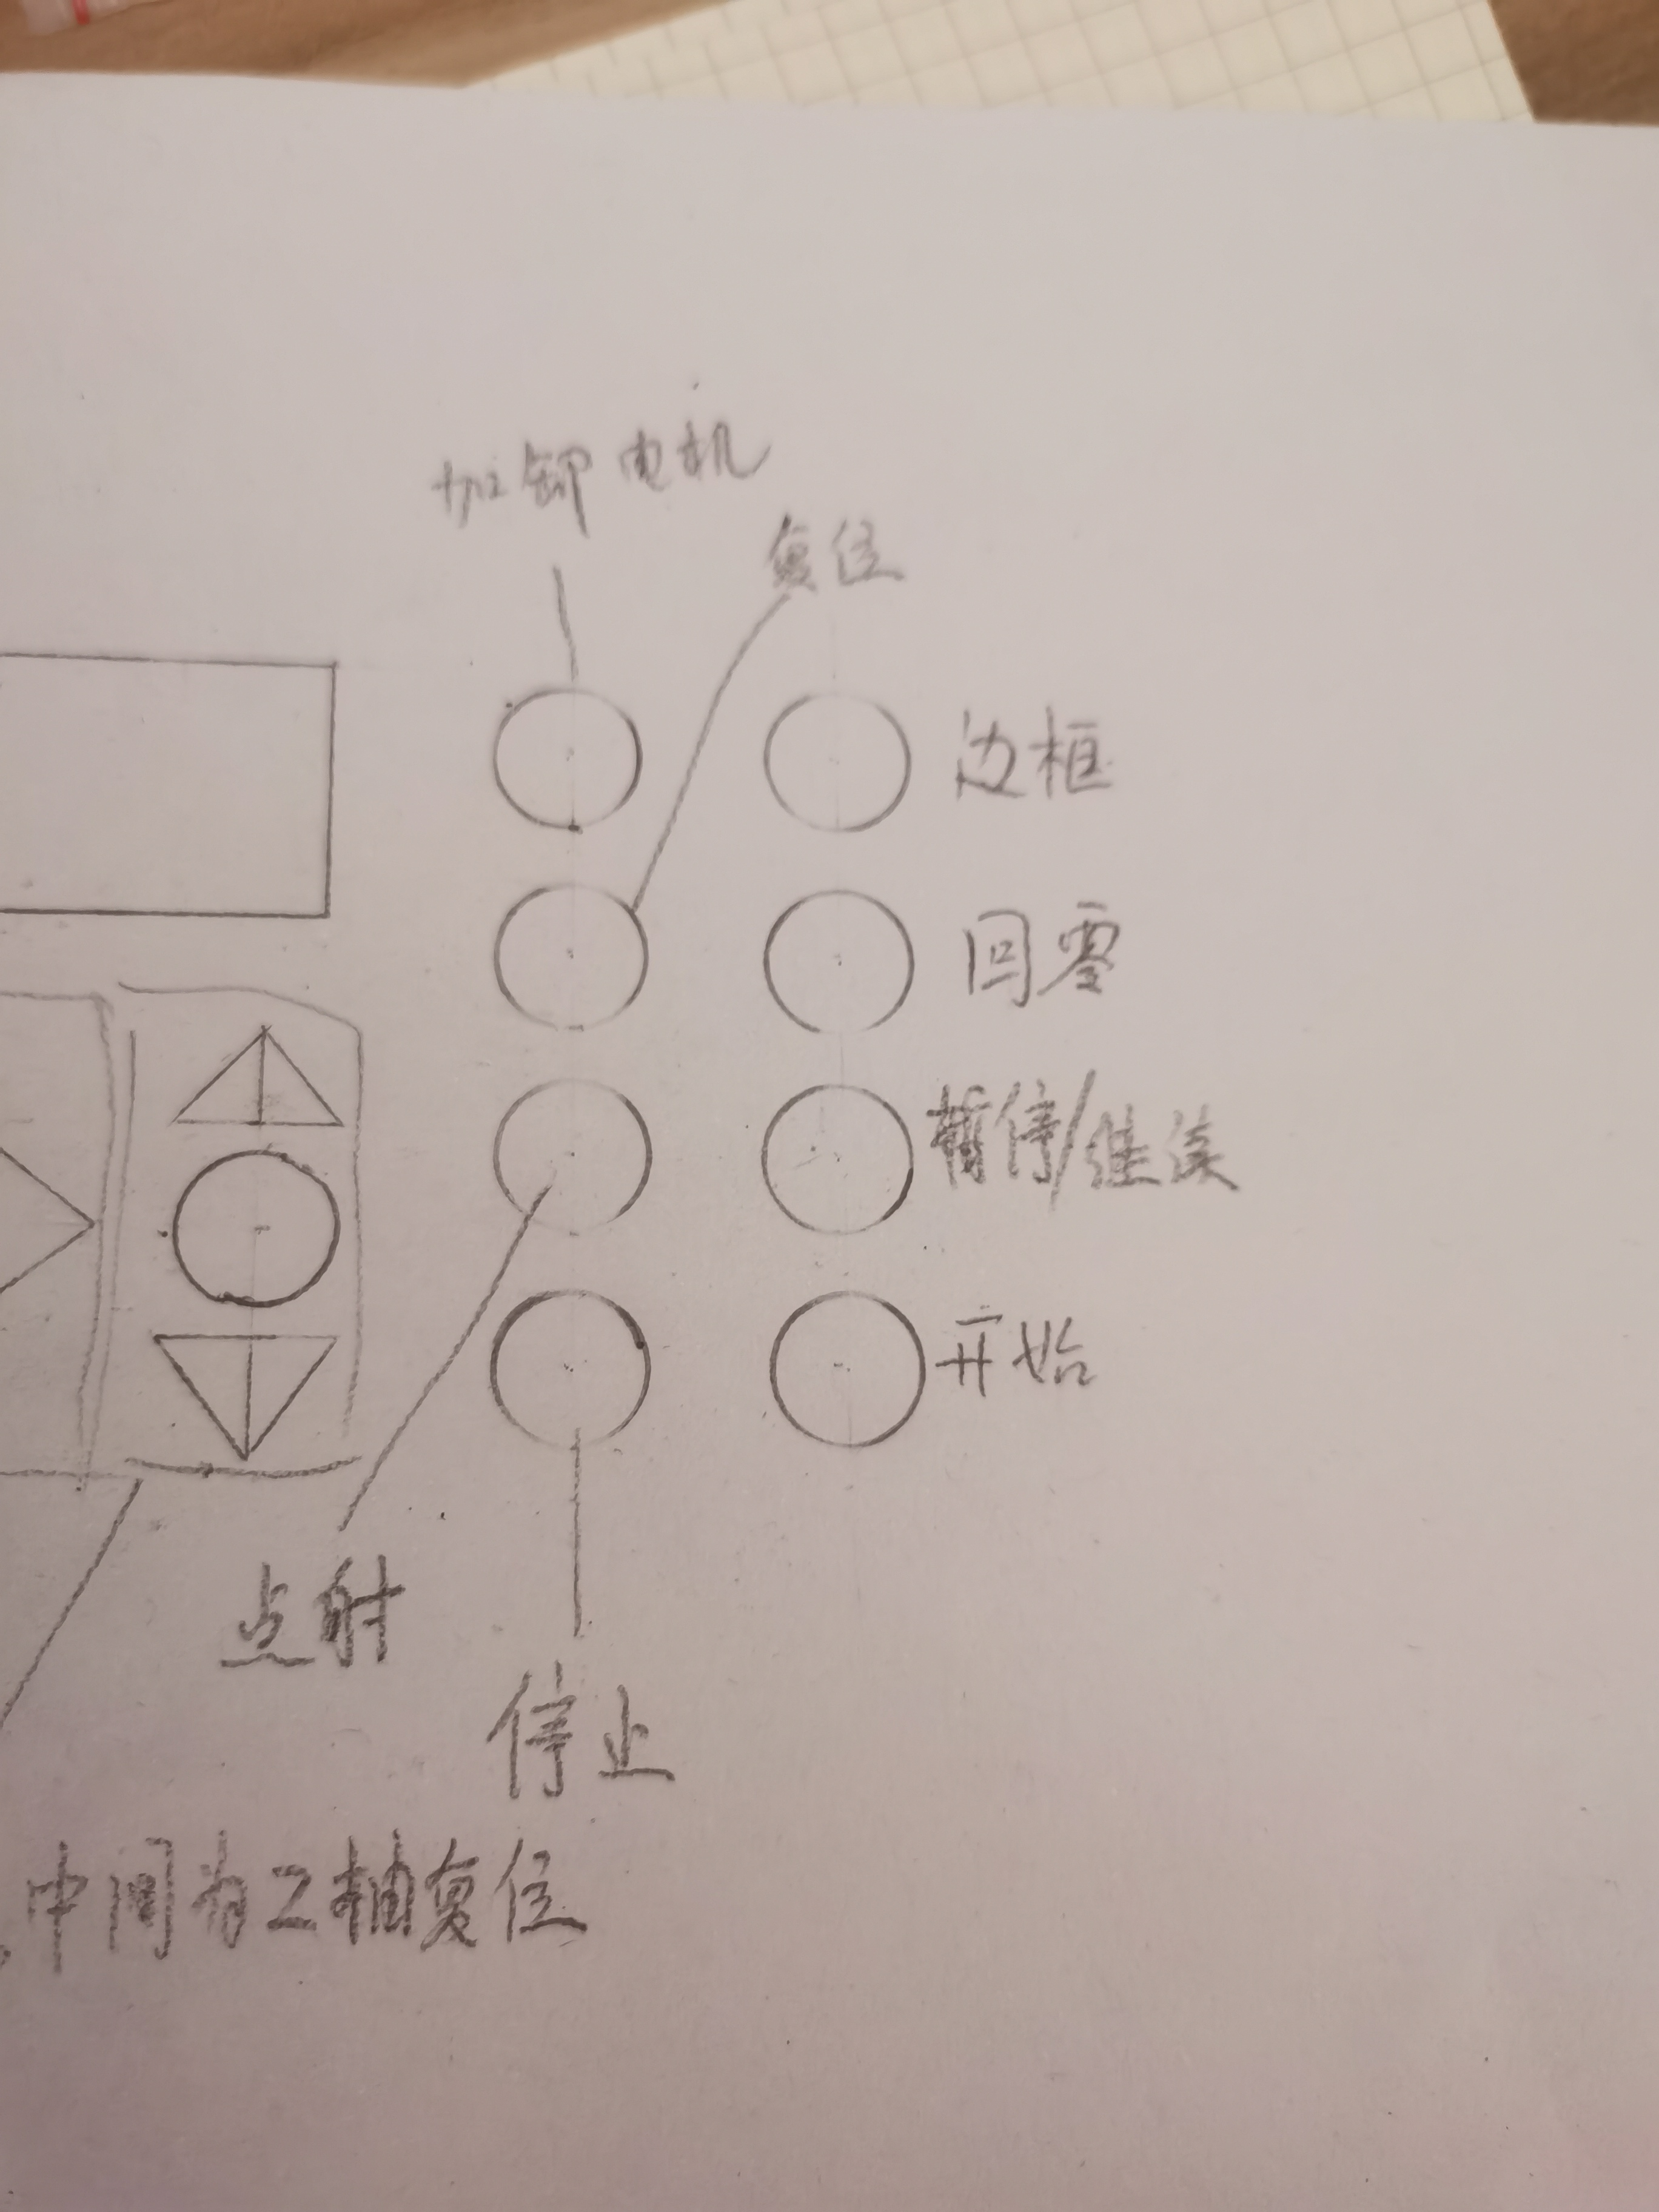 加卸电机
复位
边框
回零
暂停/继续
开始
点射
停止
中间为Z轴复位